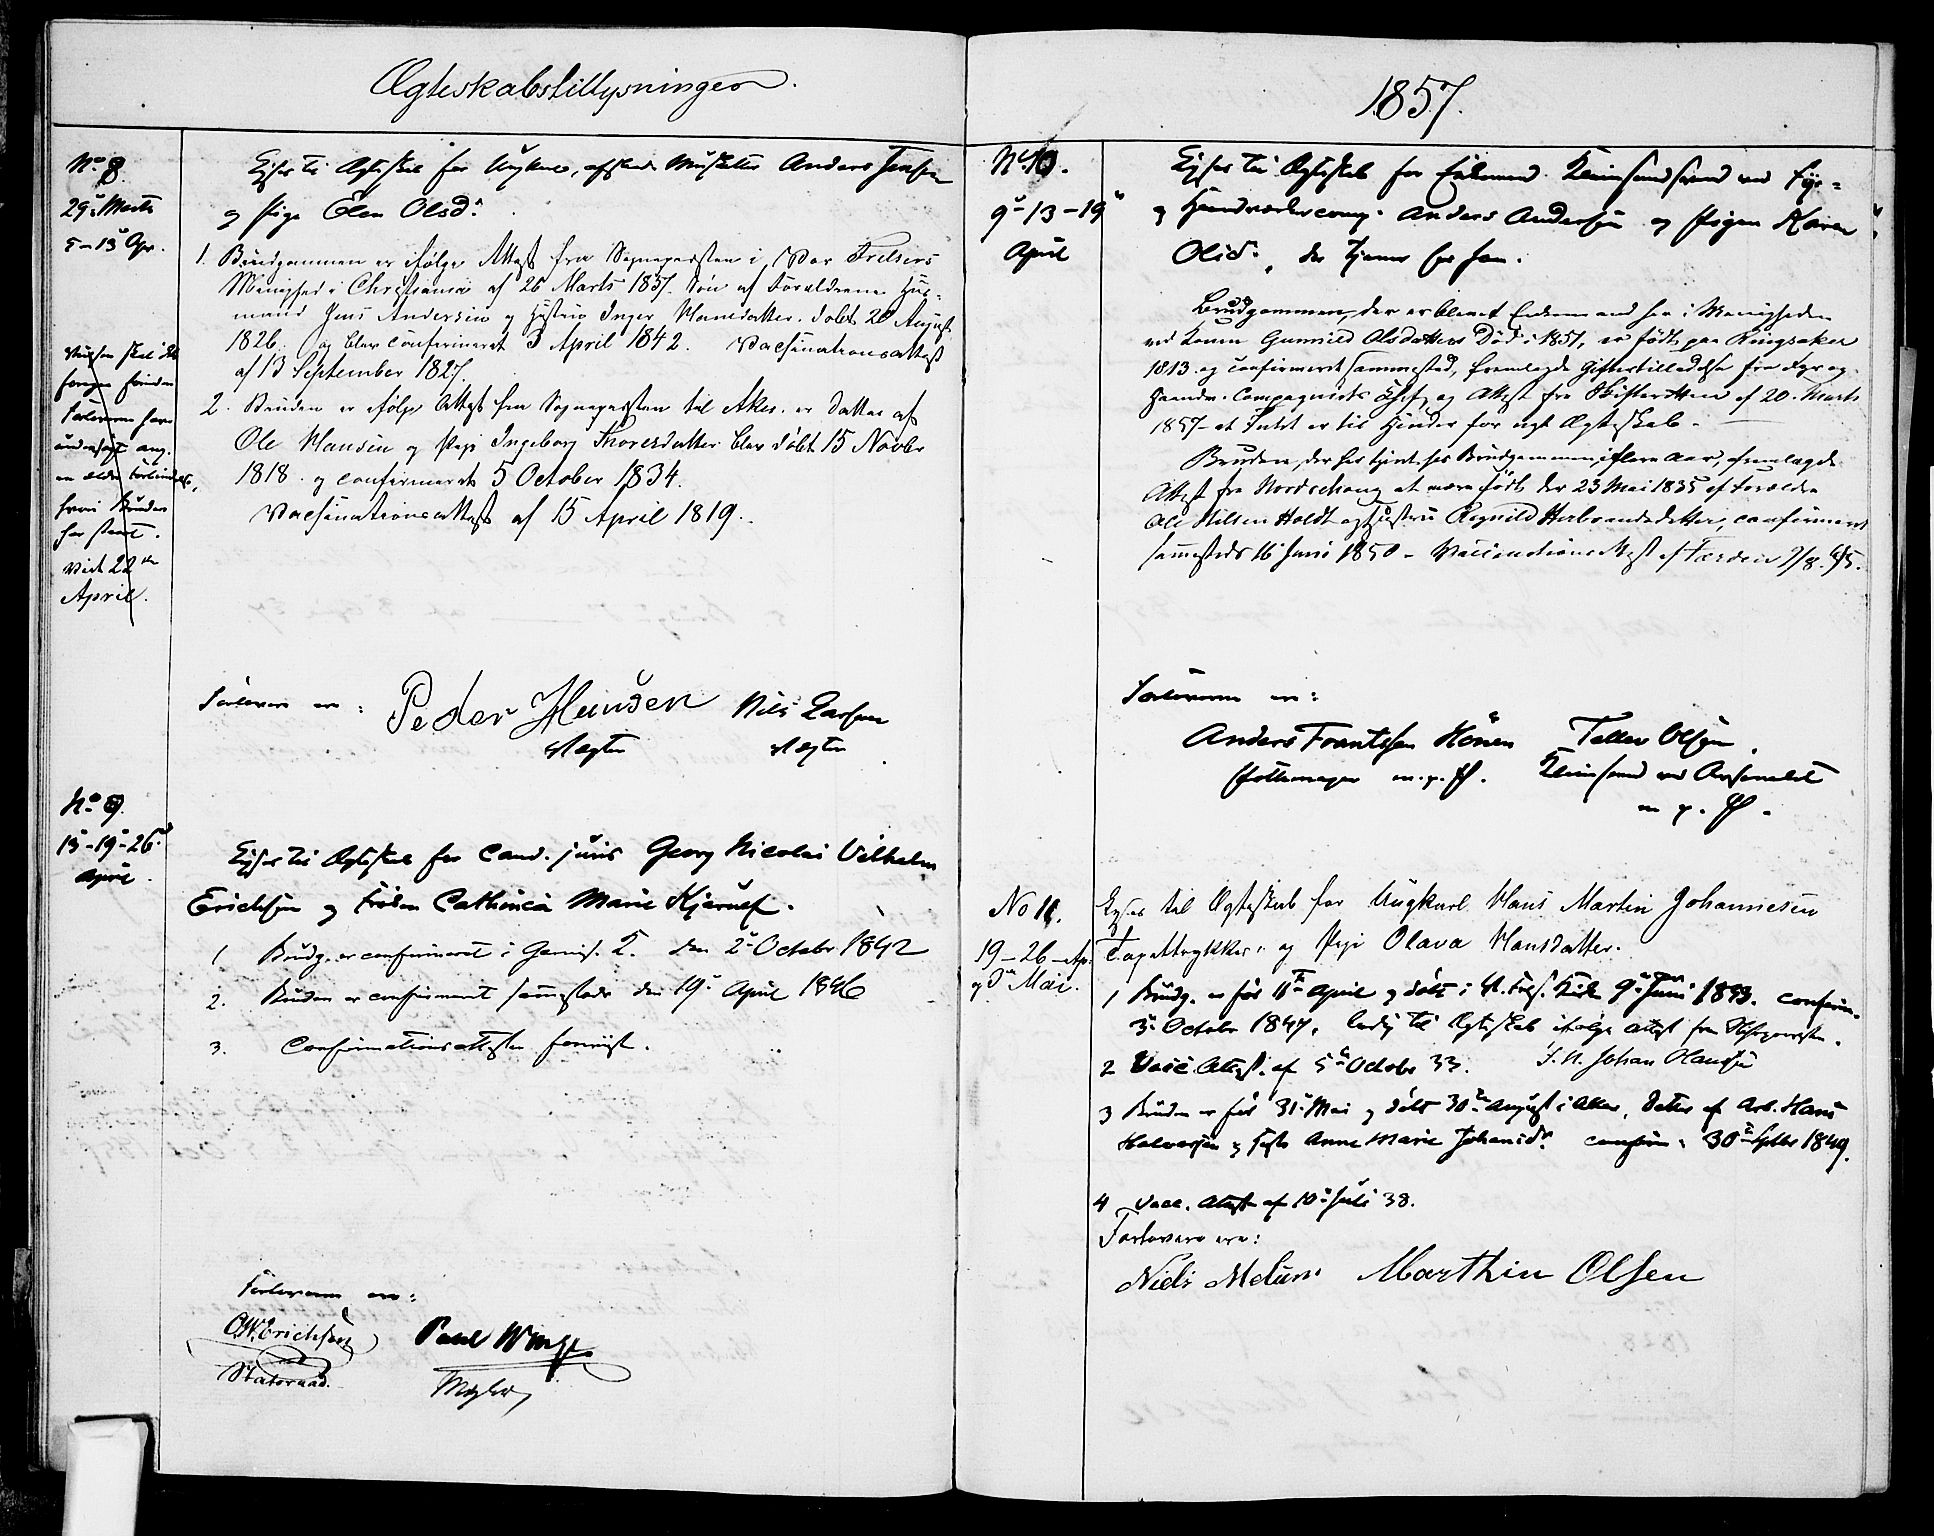 Ægteskabstillysninger.
No 8.
29 Marts
5 - 13 Apr.
Lyses til Ægteskab for Ungkarl, afskedt Musketter Anders Jensen
og Pige Elen Olsd.
1. Brudgommen er ifølge Attest fra Sognepresten i Vor Frelsers
Menighed i Christiania af 26 Marts 1857. Søn af Forældrene Hus-
mand Jens Andersen og Hustru Inger Hansdatter. døbt 20 August
1826. og blev confirmeret 3 April 1842. Vaccinationsattest
af 13 September 1827.
2. Bruden er ifølge Attest fra Sognepresten til Aker er Datter af
Ole Hansen og Pige Ingeborg Thoresdatter blev døbt 15 Novbr
1818. og confirmeret 5 October 1834.
Vaccinationsattest af 15 April 1819.
Vielsen skal
Forloverne have
undersøgt ang.
en ældre Forbindelse,
hvori Bruden
har staaet.
Viet 22
April.
Forlovere ere:
Peder Hansen Nils Larsen
Vægter Vægter
No 9.
13 - 19 - 26
April.
Lyses til Ægteskab for Cand. juris Georg Nicolai Vilhelm
Erichsen og Frøken Cathinca Marie Kjerulf.
1 Brudg. er confirmeret i Garnis. K. den 2 Octobr 1842
2. Bruden er confirmeret sammesteds den 19 April 1846
3. Confirmationsattester foreviist.
Forloverne ere:
O.W. Erichsen Paul Winge
Statsraad.
1857.
No 10.
9 - 13 - 19
April
Lyses til Ægteskab for Enkemand ved Fyr-
og Haandværkercomp. Anders Andersen og Pigen Karen
Olsd., der tjener for ham.
Brudgommen, der er blevet Enkemand her i Menigheden
ved Konen Gunnild Olsdatters Død i 1857, er født paa Ringsaker
1813 og confirmeret sammesteds, fremlagde Giftetilladelse fra Fyr og
Haandv. Compagniets Chef, og Attest fra Skifteretten af 20 Marts
1857 at Intet er til Hinder for nyt Ægteskab.
Bruden, der har tjent hos Brudgommen i flere Aar, fremlagde
Attest fra Nordrehoug at være født der 23 Mai 1835 af Forældre
Ole Nilsen Holdt og Hustru Ragnild Herbrandsdatter, confirmeret
sammesteds 16 Juni 1850 - Vaccinations Attest af
Forloverne ere:
Anders Frantsen Hønen Tellev Olsen.
m. p. P. ved Arsenalet
m. p. P.
No 11.
19 - 26 - Ap.
og 3 Mai.
Lyses til Ægteskab for Ungkarl Hans Martin Johannesen
Tapettrykker og Pige Olava Hansdatter.
1 Brudg. er født 11 April og døbt i V. Frels. Kirke 9 Juni 1833. confirm.
3 Octobr 1847. ledig til Ægteskab ifølge Attest fra
2 Vacc. Attest. af 5 Octobr 33. Johan Hansen
3 Bruden er født 31 Mai og døbt 30 August i Aker, Datter af Arb. Hans
Halvorsen og Anne Marie Johansd. confirm: 30 Septbr 1849.
4 Vacc. Attest af 10 Juli 38.
Forlovere ere:
Niels Melum Marthin Olsen